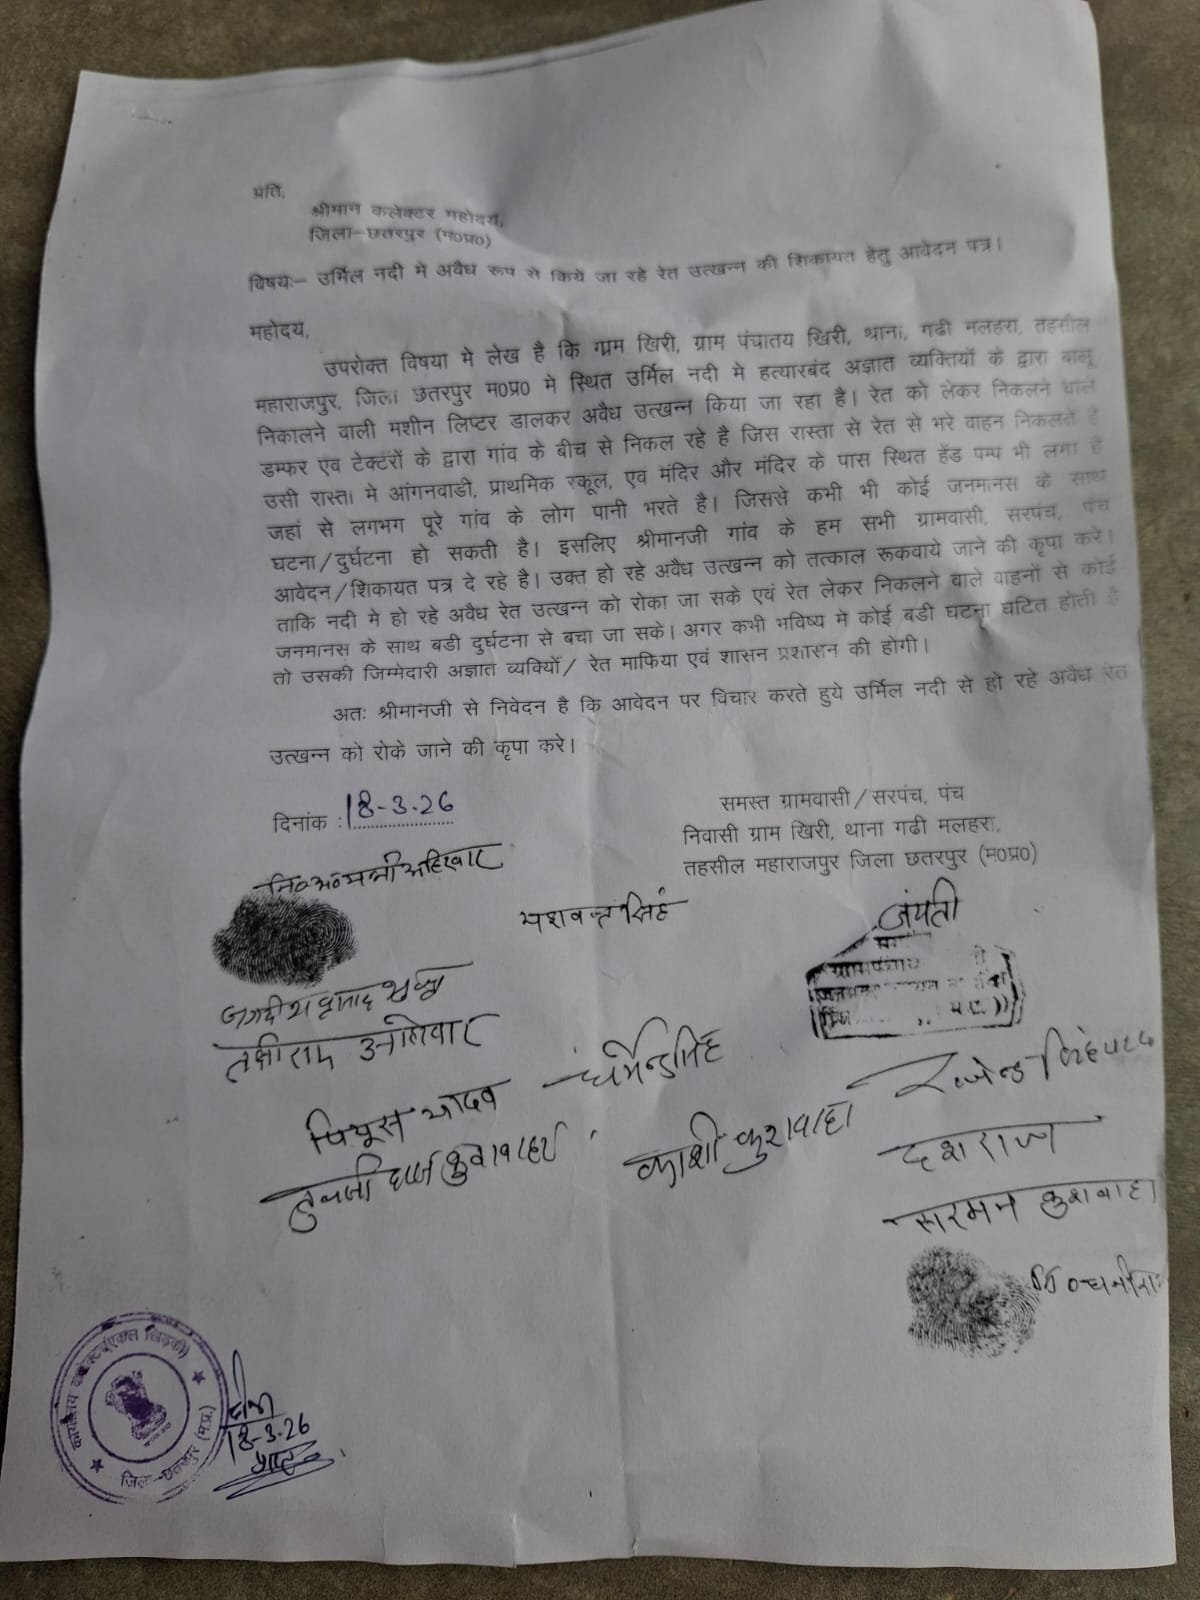 प्रति,
श्रीमान कलेक्टर महोदय,
जिला–छतरपुर (म0प्र0)
विषयः– उर्मिल नदी मे अवैध रूप से किये जा रहे रेत उत्खन्न की शिकायत हेतु आवेदन पत्र।
महोदय,
उपरोक्त विषया मे लेख है कि ग्राम खिरी, ग्राम पंचातय खिरी, थाना, गढी मलहरा, तहसील
महाराजपुर, जिला छतरपुर म0प्र0 मे स्थित उर्मिल नदी मे हत्यारबंद अज्ञात व्यक्तियों के द्वारा बालू
निकालने वाली मशीन लिप्टर डालकर अवैध उत्खन्न किया जा रहा है। रेत को लेकर निकलने वाले
डम्फर एव टेक्टरों के द्वारा गांव के बीच से निकल रहे है जिस रास्ता से रेत से भरे वाहन निकलते है
उसी रास्ता मे आंगनवाडी, प्राथमिक स्कूल, एवं मंदिर और मंदिर के पास स्थित हेंड पम्प भी लगा है
जहां से लगभग पूरे गांव के लोग पानी भरते है। जिससे कभी भी कोई जनमानस के साथ
घटना/दुर्घटना हो सकती है। इसलिए श्रीमानजी गांव के हम सभी ग्रामवासी, सरपंच, पंच
आवेदन/शिकायत पत्र दे रहे है। उक्त हो रहे अवैध उत्खन्न को तत्काल रूकवाये जाने की कृपा करे।
ताकि नदी मे हो रहे अवैध रेत उत्खन्न को रोका जा सके एवं रेत लेकर निकलने वाले वाहनों से कोई
जनमानस के साथ बडी दुर्घटना से बचा जा सके। अगर कभी भविष्य मे कोई बडी घटना घटित होती है
तो उसकी जिम्मेदारी अज्ञात व्यक्यिों/ रेत माफिया एवं शासन प्रशासन की होगी।
अतः श्रीमानजी से निवेदन है कि आवेदन पर विचार करते हुये उर्मिल नदी से हो रहे अवैध रेत
उत्खन्न को रोके जाने की कृपा करे।
दिनांक : 18-3-26
समस्त ग्रामवासी/सरपंच, पंच
निवासी ग्राम खिरी, थाना गढी मलहरा,
तहसील महाराजपुर जिला छतरपुर (म0प्र0)
अहिरवार
यशवन्त सिंह
जयंती
धर्मेन्द्र सिंह
पियूस यादव
काशी कुशवाहा
दशराज
सरमन कुशवाहा
कार्यालय कलेक्टर (एकल खिड़की)
जिला–छतरपुर (म.प्र.)
18-3-26